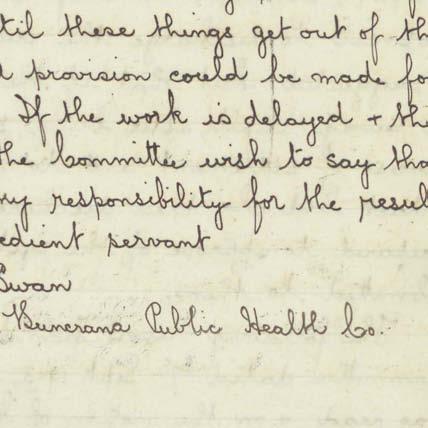 til these things get out of th
d provision could be made fo
If the work is delayed + the
the Committee wish to say tha
ry responsibility for the resul
edient servant
Swan
Buncrana Public Health Co.